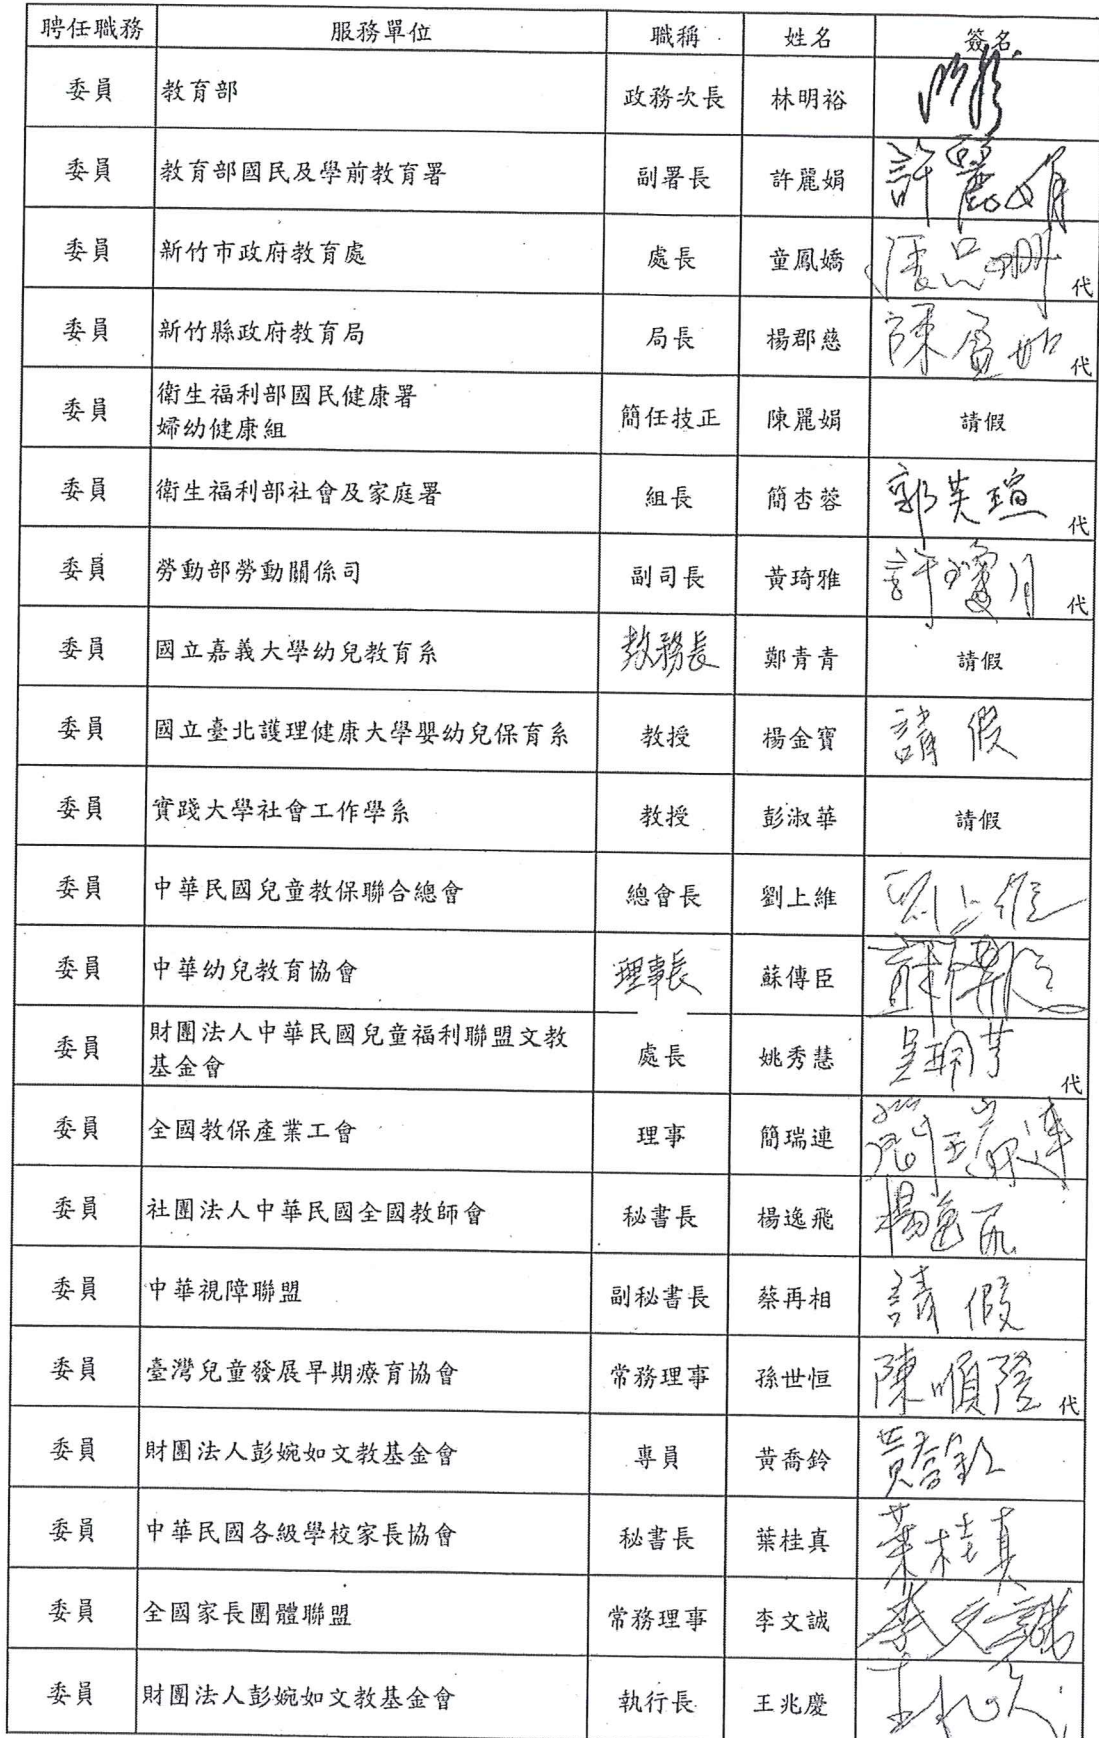 聘任職務 服務單位 職稱 姓名 簽名
委員 教育部 政務次長 林明裕
委員 教育部國民及學前教育署 副署長 許麗娟 許麗娟
委員 新竹市政府教育處 處長 童鳳嬌 代
委員 新竹縣政府教育局 局長 楊郡慈 陳盈如 代
委員 衛生福利部國民健康署
婦幼健康組 簡任技正 陳麗娟 請假
委員 衛生福利部社會及家庭署 組長 簡杏蓉 代
委員 勞動部勞動關係司 副司長 黃琦雅 許瓊月 代
委員 國立嘉義大學幼兒教育系 教務長 鄭青青 請假
委員 國立臺北護理健康大學嬰幼兒保育系 教授 楊金寶 請假
委員 實踐大學社會工作學系 教授 彭淑華 請假
委員 中華民國兒童教保聯合總會 總會長 劉上維 劉上維
委員 中華幼兒教育協會 理事長 蘇傳臣 蘇傳臣
委員 財團法人中華民國兒童福利聯盟文教
基金會 處長 姚秀慧 代
委員 全國教保產業工會 理事 簡瑞連 簡瑞連
委員 社團法人中華民國全國教師會 秘書長 楊逸飛 楊逸飛
委員 中華視障聯盟 副秘書長 蔡再相 請假
委員 臺灣兒童發展早期療育協會 常務理事 孫世恒 陳順隆 代
委員 財團法人彭婉如文教基金會 專員 黃喬鈴 黃喬鈴
委員 中華民國各級學校家長協會 秘書長 葉桂真 葉桂真
委員 全國家長團體聯盟 常務理事 李文誠 李文誠
委員 財團法人彭婉如文教基金會 執行長 王兆慶 王兆慶